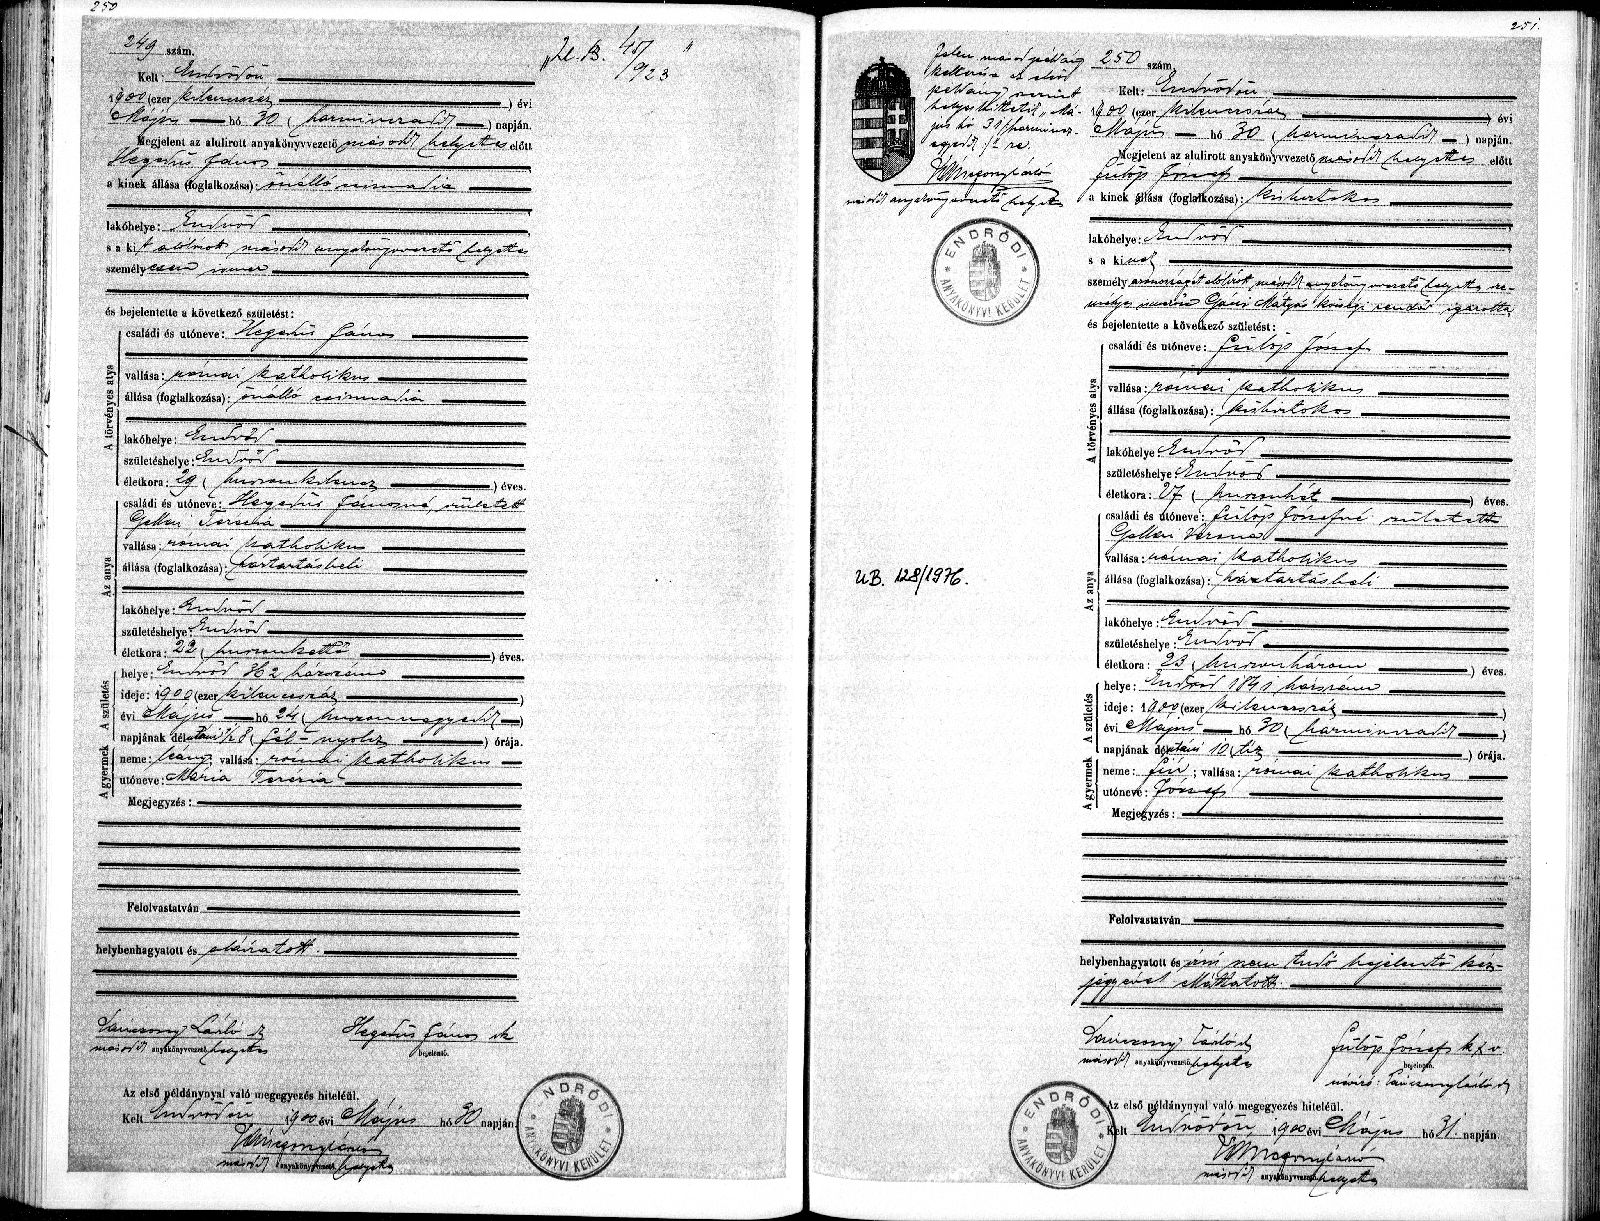 250
249 szám.
Kelt: Endrődön
1900 (ezer kilenczszáz ) évi
Május hó 30 ( harminczadik ) napján.
Megjelent az alulirott anyakönyvvezető másodk helyettes előtt
Hegedüs János
a kinek állása (foglalkozása): önálló csizmadia
lakóhelye: Endrőd
s a kit alulirott másodk anyakönyvvezető helyettes
személyesen ismer
és bejelentette a következő születést:
A törvényes atya
családi és utóneve: Hegedüs János
vallása: római katholikus
állása (foglalkozása): önálló csizmadia
lakóhelye: Endrőd
születéshelye: Endrőd
életkora: 29 ( huszonkilencz ) éves.
Az anya
családi és utóneve: Hegedüs Jánosné született
Gellai Terézia
vallása: római katholikus
állása (foglalkozása): háztartásbeli
lakóhelye: Endrőd
születéshelye: Endrőd
életkora: 22 ( huszonkettő ) éves.
A születés
helye: Endrőd 362 házszám
ideje: 1900 (ezer kilenczszáz )
évi Május hó 24 ( huszonnegyedik )
napjának délutáni 1/2 8 ( fél-nyolcz ) órája.
A gyermek
neme: leány; vallása: római katholikus
utóneve: Mária Terézia
Megjegyzés:
Felolvastatván
helybenhagyatott és aláíratott.
másodk anyakönyvvezető helyettes
Hegedüs János sk
bejelentő.
Az első példánynyal való megegyezés hiteléül.
Kelt Endrődön 1900 évi Május hó 30 napján.
másodk anyakönyvvezető helyettes
ENDRŐDI
ANYAKÖNYVI KERÜLET
251.
Jelen másodpéldány
kelt része az első
példány szerint
helyesbíttetik „Má-
jus hó 31 /harmincz-
egyedik/-re.
másodk anyakönyvvezető helyettes
ENDRŐDI
ANYAKÖNYVI KERÜLET
UB. 128/1976.
250 szám.
Kelt: Endrődön
1900 (ezer kilenczszáz ) évi
Május hó 30 ( harminczadik ) napján.
Megjelent az alulirott anyakönyvvezető másodk helyettes előtt
Fülöp József
a kinek állása (foglalkozása): kisbirtokos
lakóhelye: Endrőd
s a kinek
személyazonosságát alulirott másodk anyakönyvvezető helyettes sze-
mélyes ismerőse Mátyás községi rendőr igazolta
és bejelentette a következő születést:
A törvényes atya
családi és utóneve: Fülöp József
vallása: római katholikus
állása (foglalkozása): kisbirtokos
lakóhelye Endrőd
születéshelye Endrőd
életkora: 27 ( huszonhét ) éves.
Az anya
családi és utóneve: Fülöp Józsefné született
Gellai Verona
vallása: római katholikus
állása (foglalkozása): háztartásbeli
lakóhelye: Endrőd
születéshelye: Endrőd
életkora: 23 ( huszonhárom ) éves.
A születés
helye: Endrőd 1841 házszám
ideje: 1900 (ezer kilenczszáz )
évi Május hó 30 ( harminczadik )
napjának délutáni 10 ( tiz ) órája.
A gyermek
neme: fiú; vallása: római katholikus
utóneve: József
Megjegyzés:
Felolvastatván
helybenhagyatott és írni nem tudó bejelentő kéz-
jegyével elláttatott.
másodk anyakönyvvezető helyettes
Fülöp József k x v
bejelentő.
Az első példánynyal való megegyezés hiteléül.
Kelt Endrődön 1900 évi Május hó 31. napján.
másodk anyakönyvvezető helyettes
ENDRŐDI
ANYAKÖNYVI KERÜLET